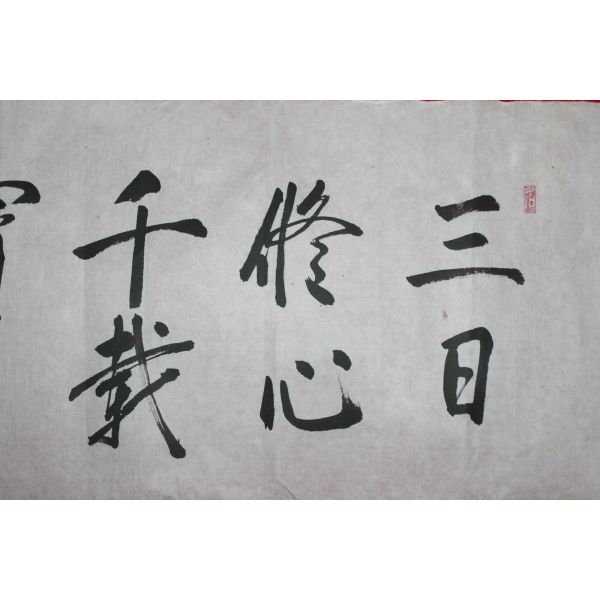 三日
修心
千載